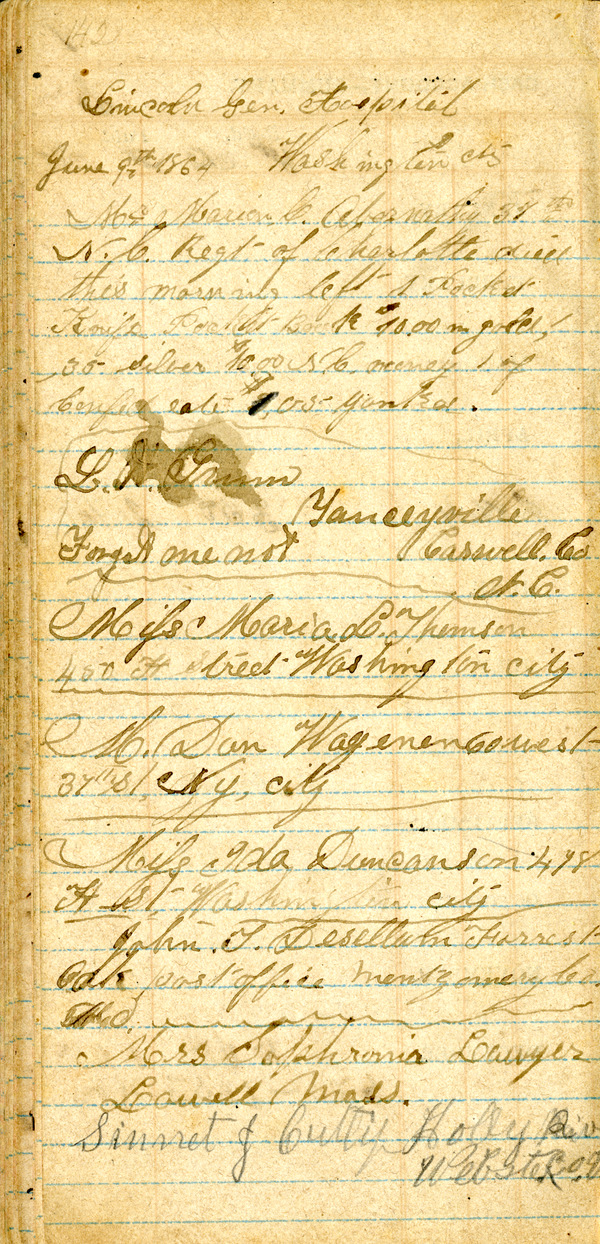 142
Lincoln Gen. Hospital
June 9th 1864 Washington City
Mr Marion C. Abernathy 37 th
N. C. Regt of Charlotte died
this morning left 1 Pocket
Knife Pocket book $10.00 in gold
35 silver $10.00 N C. money 1 of
$1,05 yankee.
L. H. Gunn
Yanceyville
Forget me not Caswell. Co
N. C.
Miss Maria L. Thomson
480 H street Washington city
M. Dan Wagenen 60 west
37th St, Ny, city
Miss Ida Duncanson 478
H St, Washington city
John. T. Desellum Forrest
Oak post office montgomery Co.
Md.
Mrs Sophronia Lawyer
Lowell Mass.
Sinnet & Cutty Holly Riv
Webster